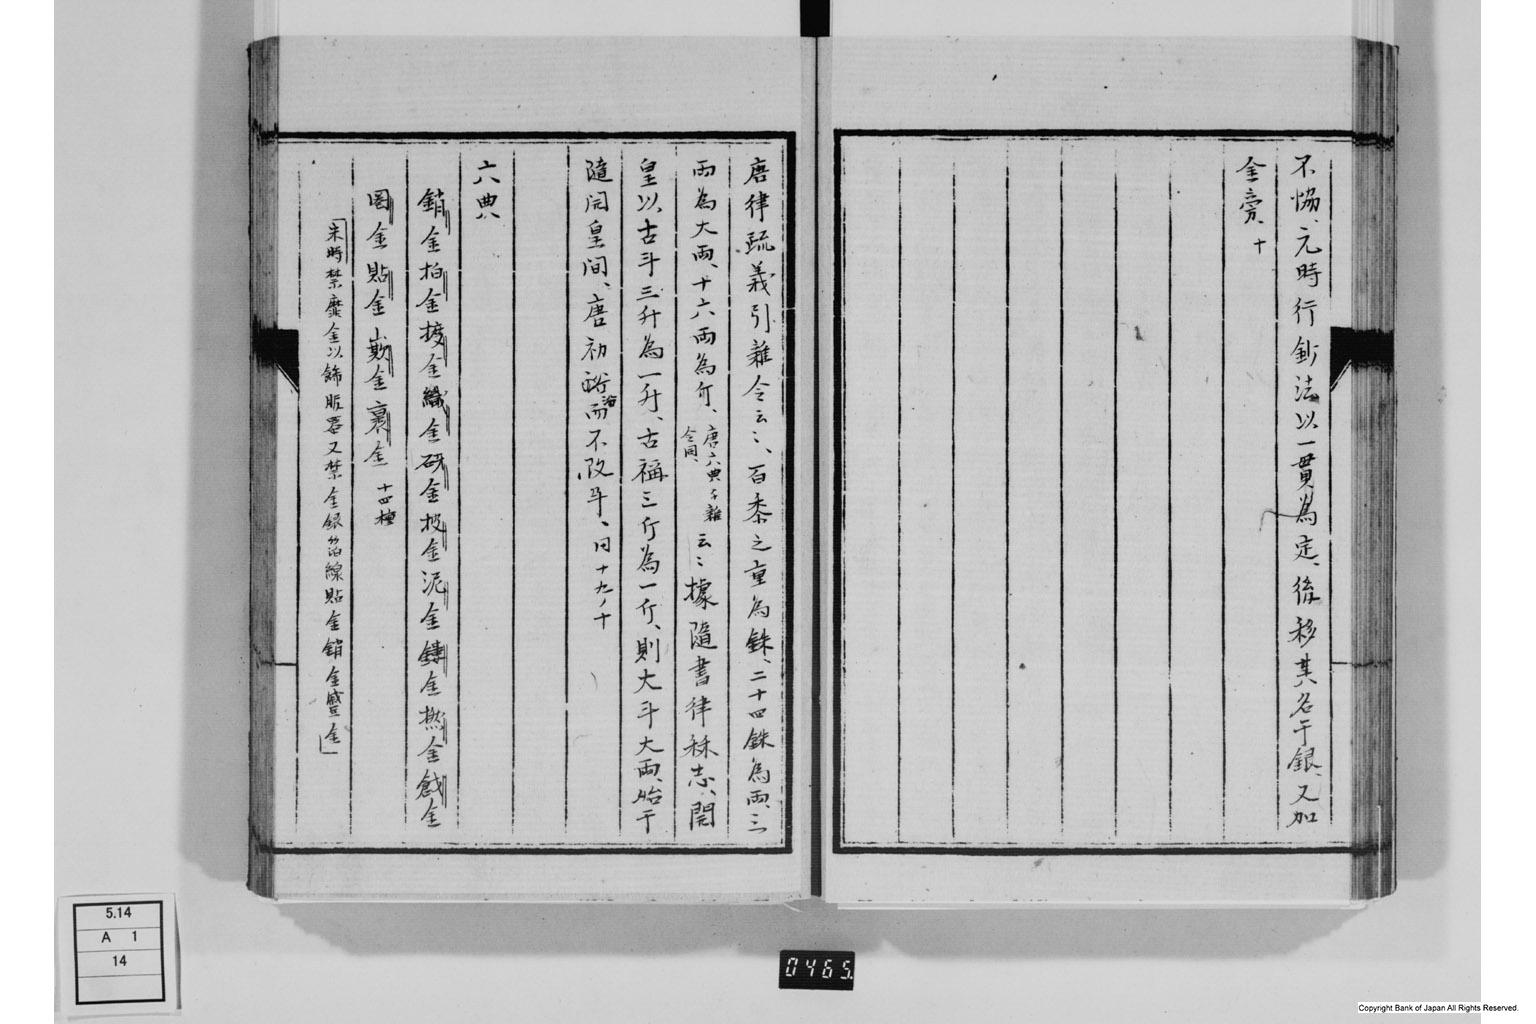 不恊、元時行鈔法以一貫為定、後移其名于銀、又加
金旁、十
唐律疏義引雜令云〻、百黍之重為銖、二十四銖為兩、三
兩為大兩、十六兩為斤、唐六典雜令同、云〻據隨書律秝志、開
皇以古斗三升為一升、古稱三斤為一斤、則大斗大兩、始于
隨開皇間、唐初沿而不改耳、同十九ノ十
六典
銷金拍金鍍金織金研金披金泥金鏤金撚金戧金
圈金貼金嵌金裹金 十四種
「宋時禁糜金以飾服器又禁金銀箔線貼金銷金蹙金」
5.14
A 1
14
0465
Copyright Bank of Japan All Rights Reserved.